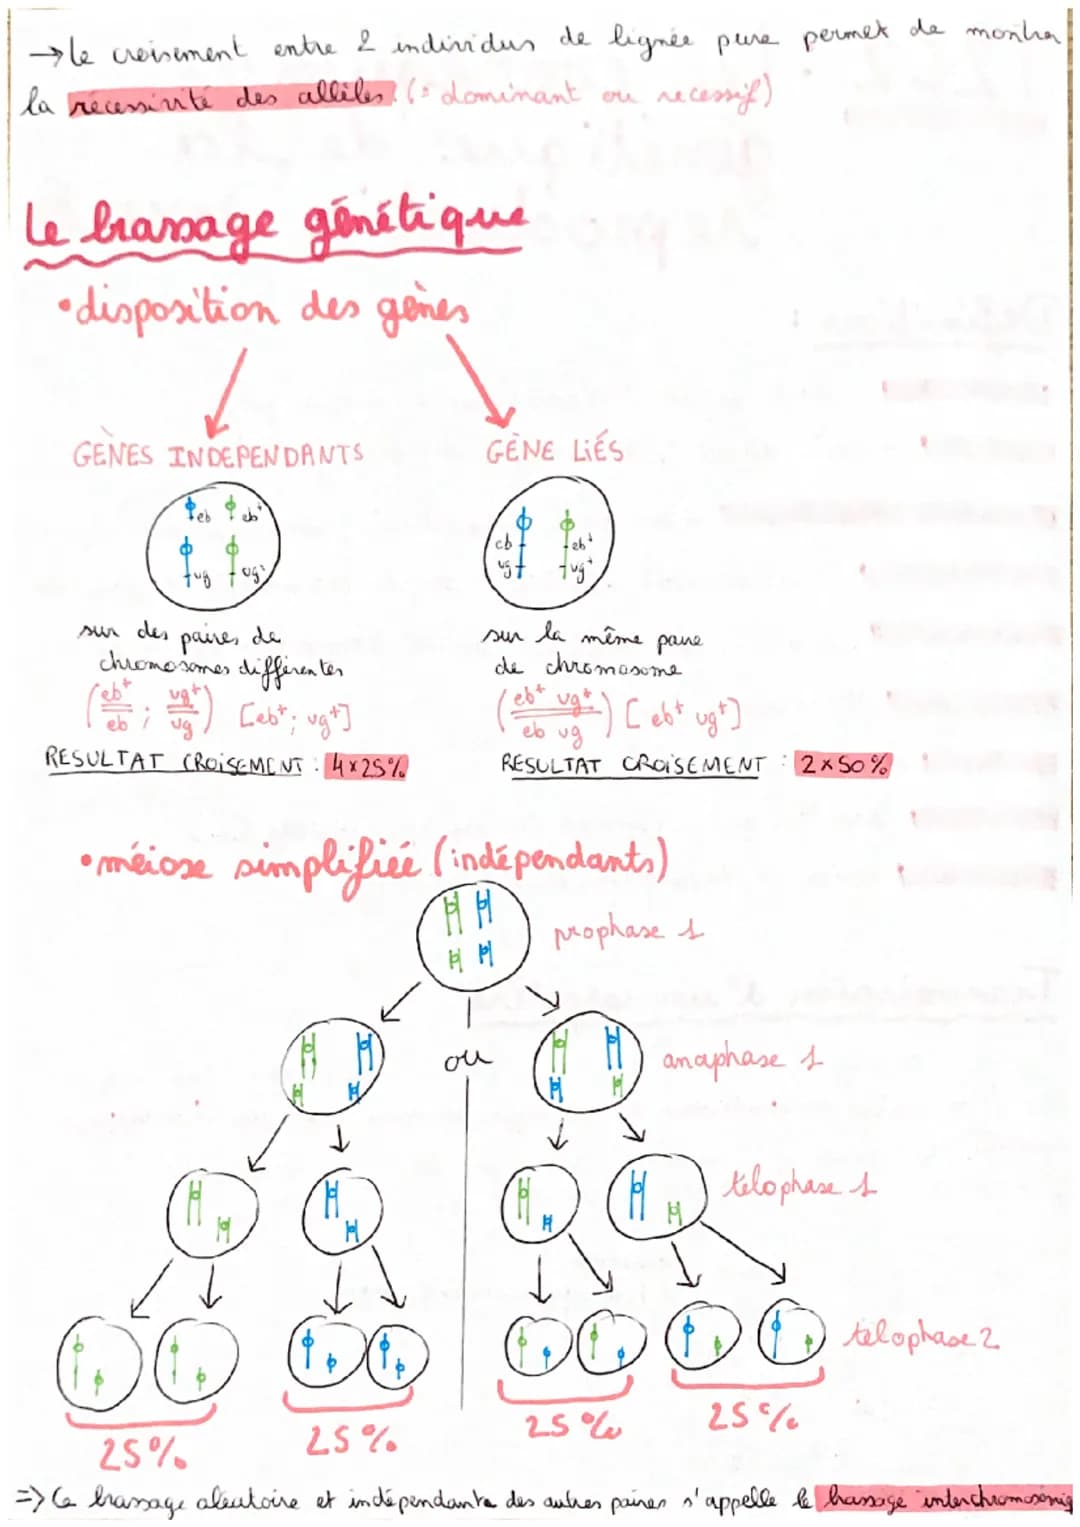 → le croisement entre 2 individus de lignée pure permet de montrer
la récessivité des allèles. (= dominant ou recessif)
Le brassage génétique
• disposition des gènes
GÈNES INDEPENDANTS
GÈNE LIÉS
eb eb+
vg vg+
eb eb+
vg vg+
sur des paires de
chromosomes différentes
(eb+/eb ; vg+/vg) [eb+; vg+]
RESULTAT CROISEMENT : 4x25%
sur la même paire
de chromosome
(eb+ vg+/eb vg) [eb+ vg+]
RESULTAT CROISEMENT : 2x50%
• méiose simplifiée (indépendants)
prophase 1
ou
anaphase 1
télophase 1
télophase 2
25%
25%
25%
25%
=> Ce brassage aléatoire et indépendante des autres paires s'appelle le brassage interchromosomiq